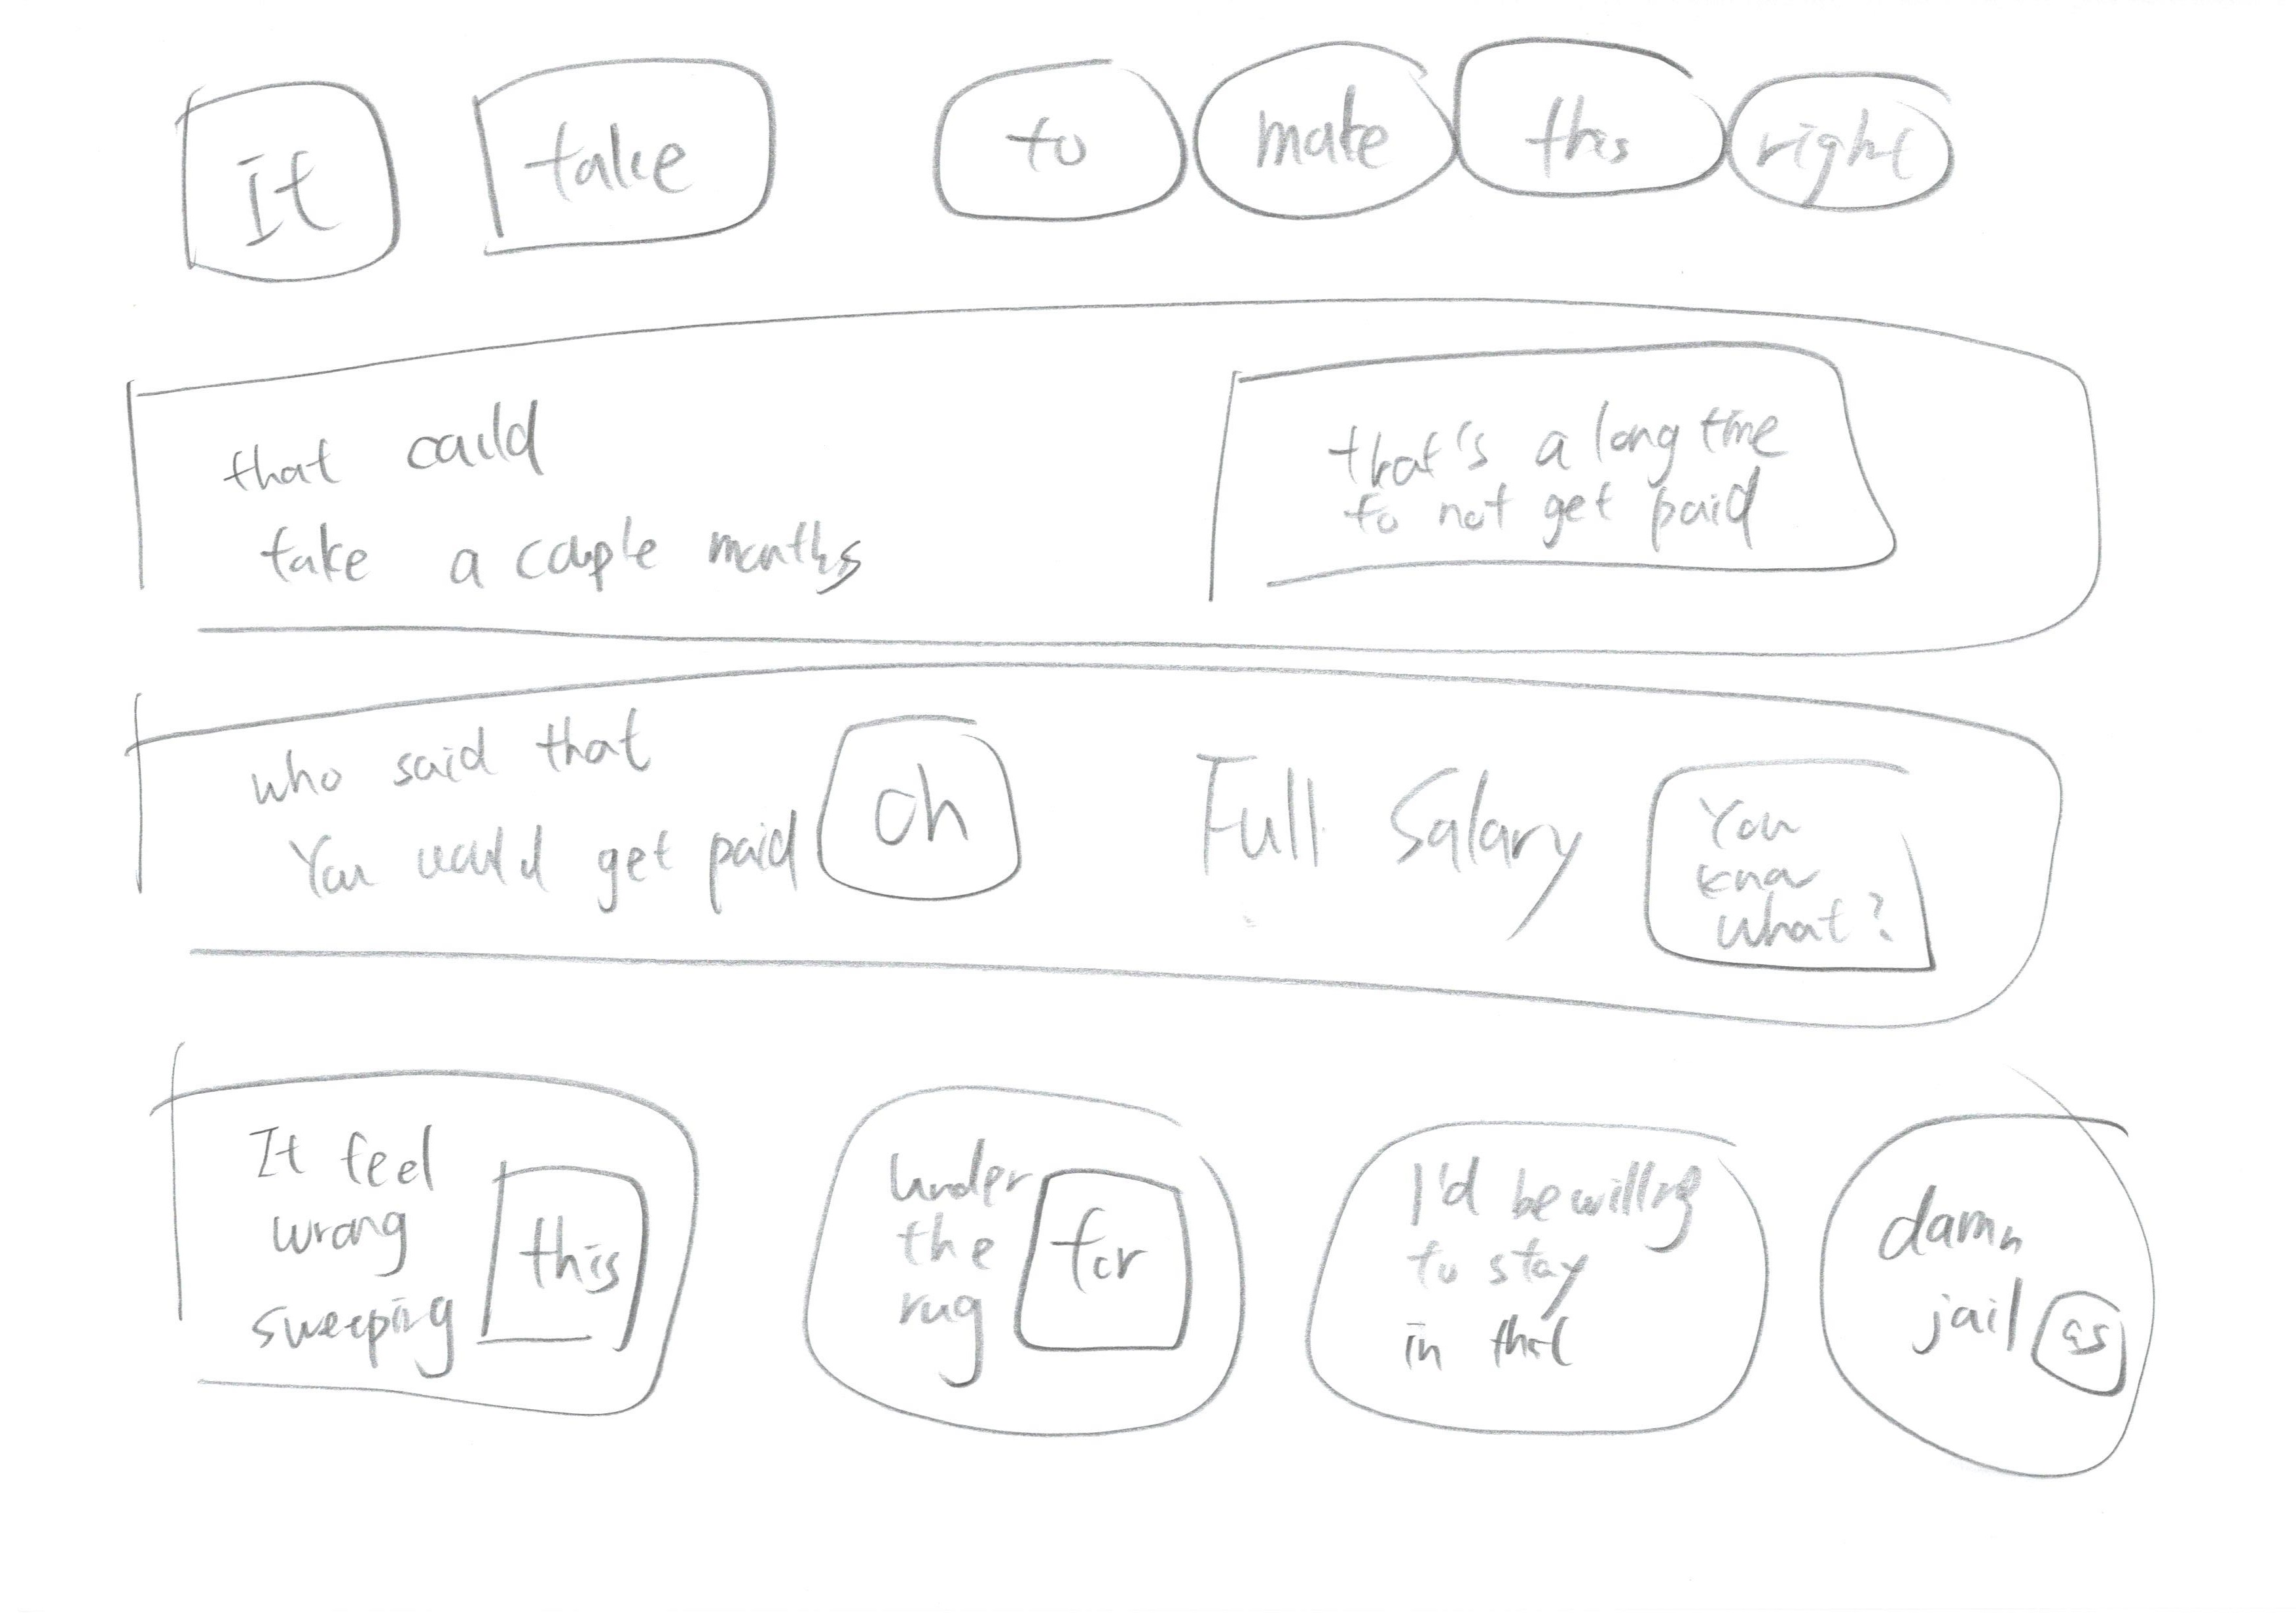 it take to make this right
that could
take a couple months
that's a long time
to not get paid
who said that
You would get paid
oh
Full Salary
You
know
what?
It feel
wrong
sweeping
this
under
the
rug
for
I'd be willing
to stay
in that
damn
jail
as